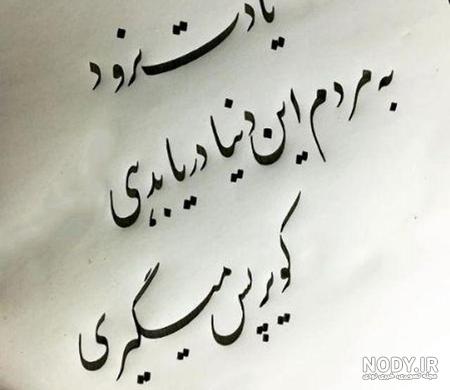 یادت نرود
به مردم این دنیا دریا بدهی
کویر پس میگیری
NODY.IR